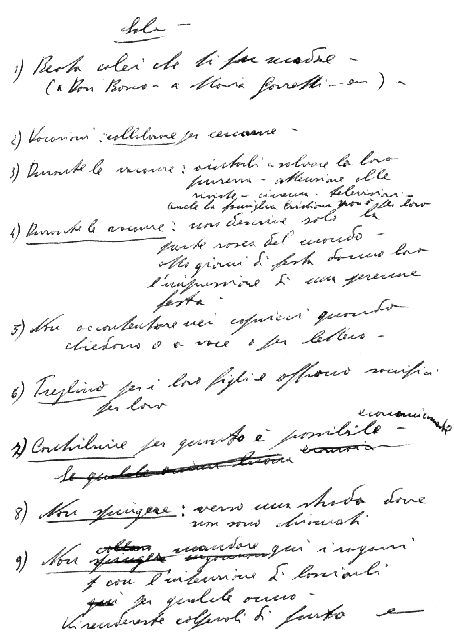 1) Beata colei che ti fu madre -
(a Don Bosco - a Maria Goretti - ecc) -
2) Vocazioni: coltivare per
3) Durante le vacanze: aiutateli a salvare la loro
purezza - attenzione alle
riviste - cinema - televisioni -
anche la famiglia cristiana non è per loro
4) Durante le vacanze: non descrivere solo la
parte rosea del mondo -
otto giorni di festa danno loro
l'impressione di una perenne
festa
5) Non accontentare nei capricci quando
chiedono o a voce o per lettera -
6) Preghino per i loro figli e offrano sacrifici
per loro
7) Contribuire per quanto è possibile - economicamente
8) Non spingere: verso una strada dove
non sono chiamati
9) Non mandare qui i ragazzi
con l'intenzione di lasciarli
per qualche anno -
Vi rendereste colpevoli di furto e